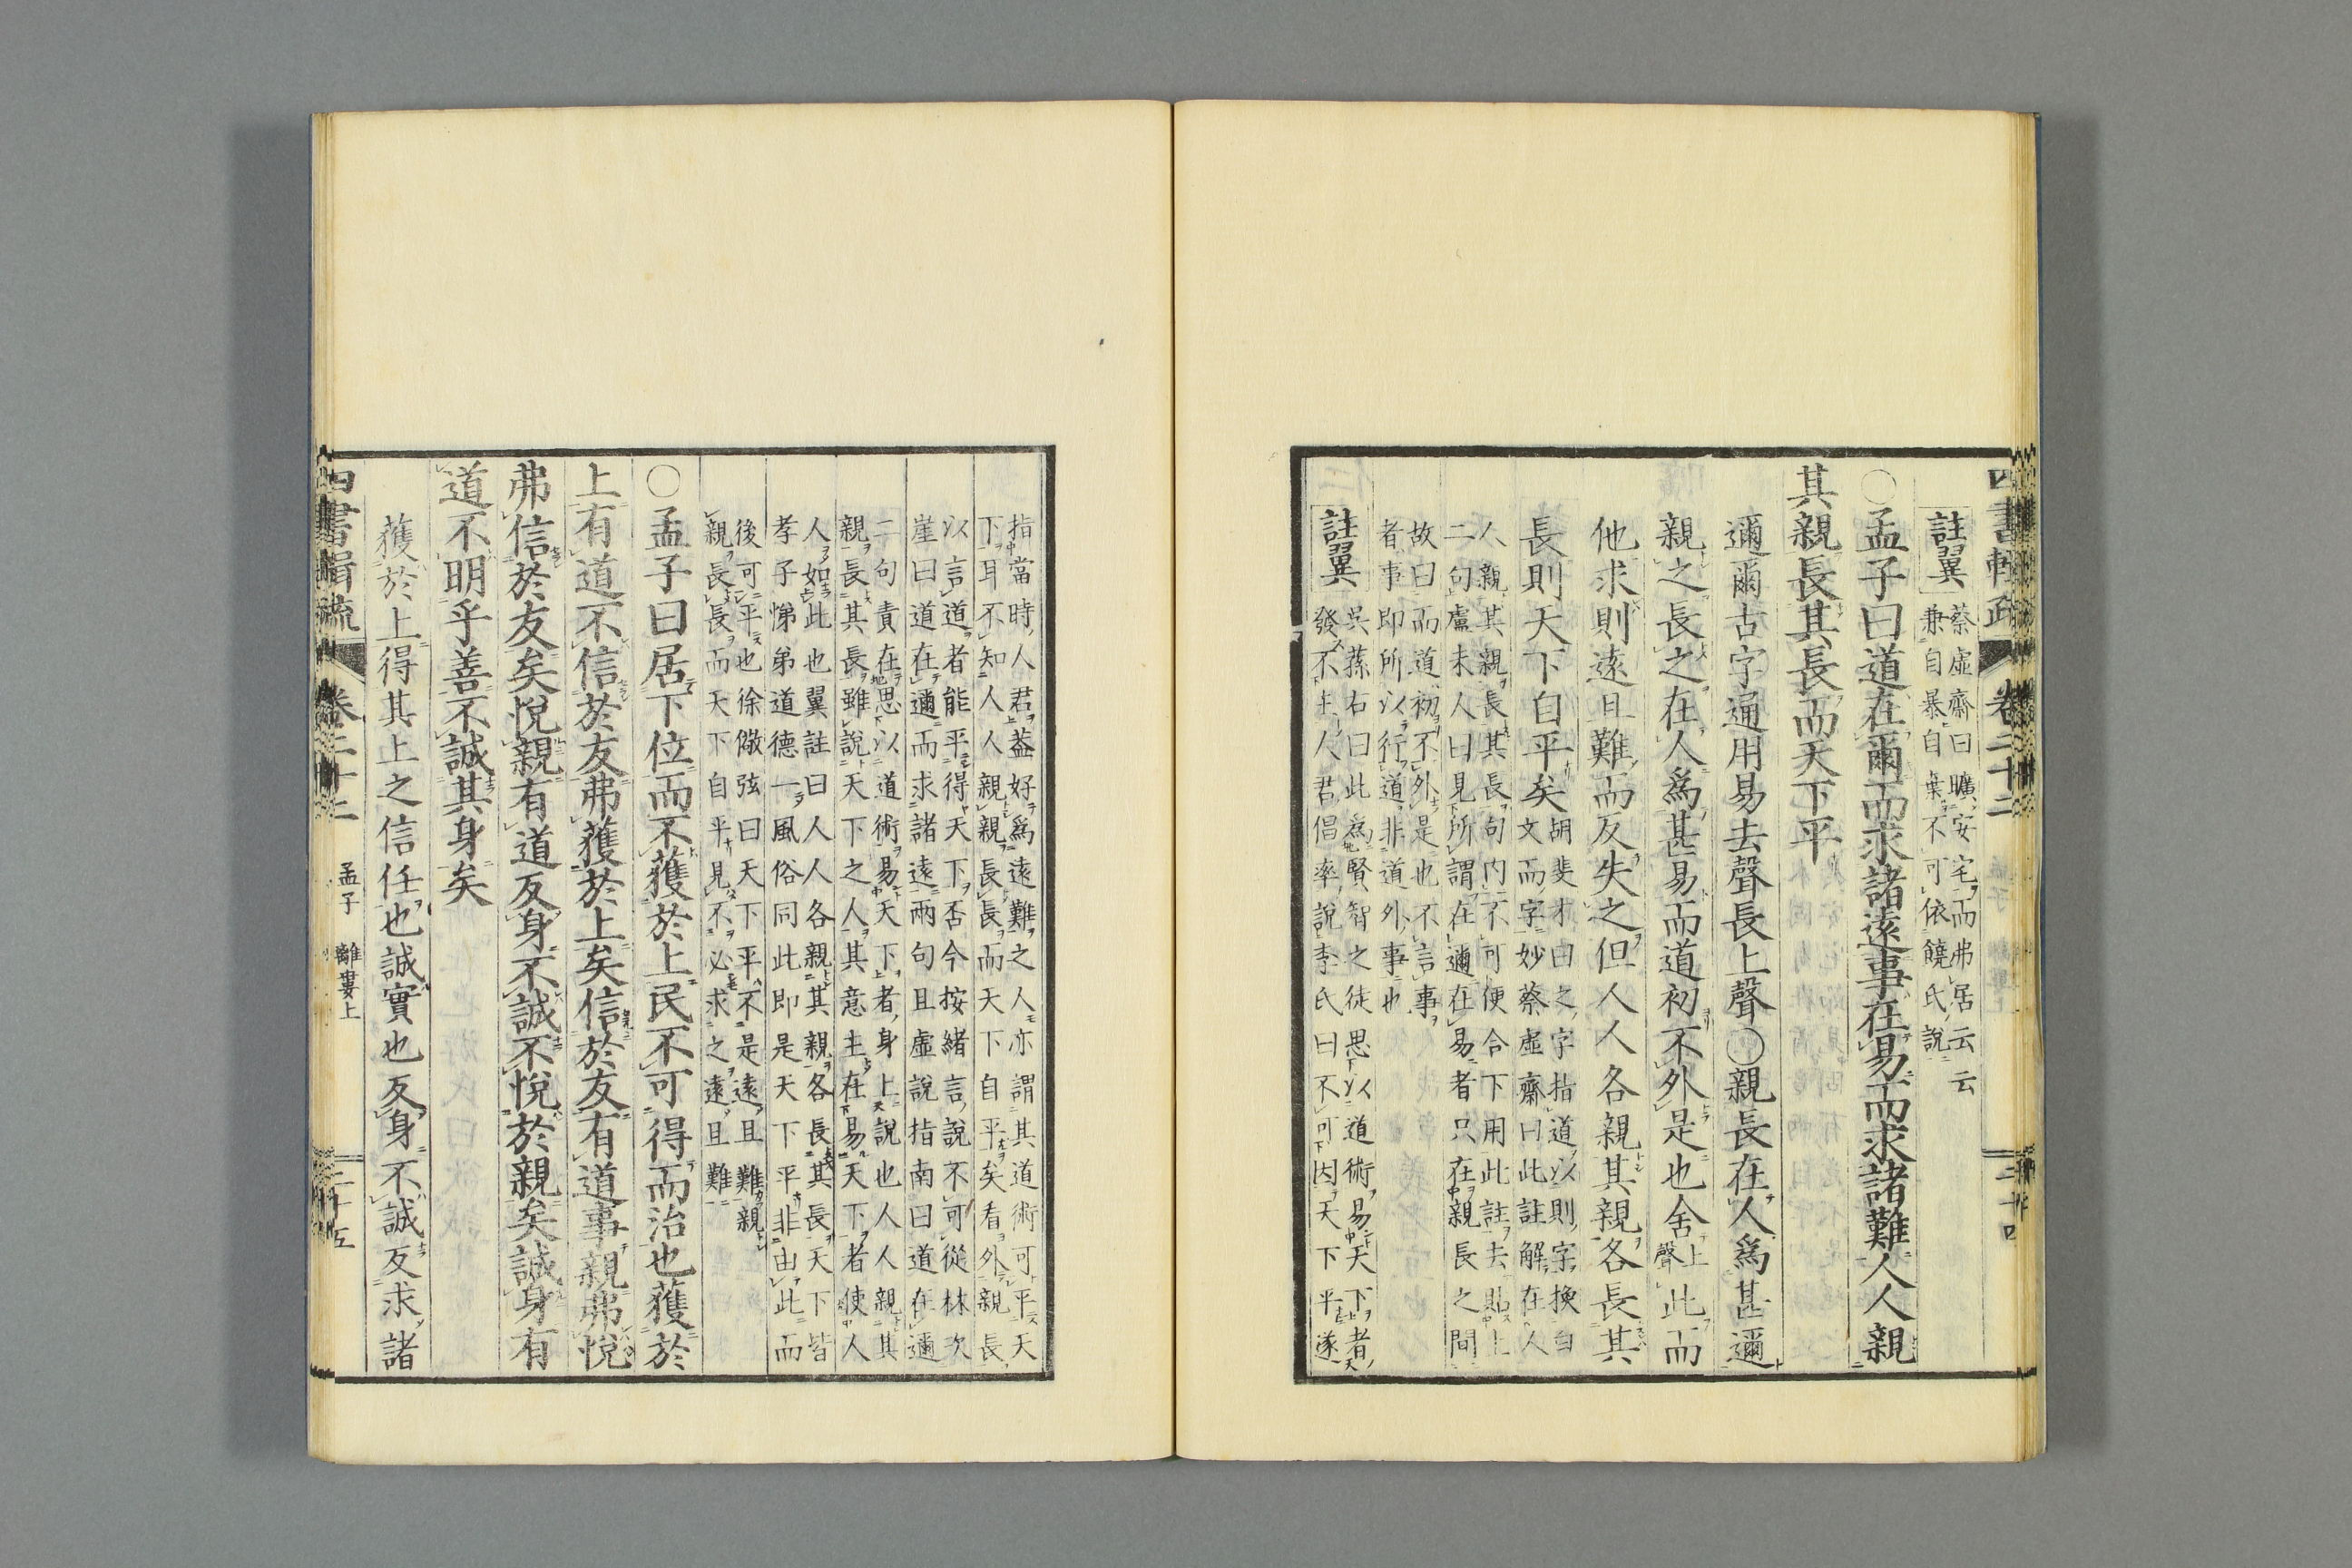 四書輯疏 卷二十二 二十四
註翼 蔡虛齋曰曠安宅而弗居云云
兼自暴自棄不可依饒氏說
○孟子曰道在爾而求諸遠事在易而求諸難人人親
其親長其長而天下平
邇爾古字通用易去聲長上聲○親長在人爲甚邇
親之長之在人爲甚易而道初不外是也舍上聲此而
他求則遠且難而反失之但人人各親其親各長其
長則天下自平矣
胡斐才曰之字指道以則字換自
文而字妙蔡虛齋曰此註解在人
人親其親長其長句內不可便合下用此註去貼上
二句盧未人曰見所謂在邇在易者只在親長之間
故曰而道初不外是也不言事
者事即所以行道非道外事也
註翼 吳蓀右曰此爲賢智之徒思以道術易天下者
發不主人君倡率說李氏曰不可因天下平遂
指當時人君蓋好爲遠難之人亦謂其道術可平天
下耳不知人人親親長長而天下自平矣看外親長
以言道者能平得天下否今按緒言說不可從林次
崖曰道在邇而求諸遠兩句且虛說指南曰道在邇
二句責在思以道術易天下者身上說也人人親其
親長其長雖說天下之人其意主在易天下者使人
人如此也翼註曰人人各親其親各長其長天下皆
孝子悌弟道德一風俗同此即是天下平非由此而
後可平也徐儆弦曰天下平不是遠且難親
親長長而天下自平見不必求之遠且難
○孟子曰居下位而不獲於上民不可得而治也獲於
上有道不信於友弗獲於上矣信於友有道事親弗悅
弗信於友矣悅親有道反身不誠不悅於親矣誠身有
道不明乎善不誠其身矣
獲於上得其上之信任也誠實也反身不誠反求諸
四書輯疏 卷二十二 孟子 離婁上 二十五